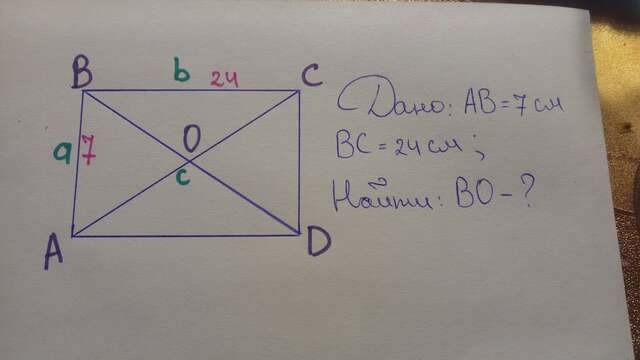 B b 24 C
a 7 O
c
A D
Дано: AB = 7 см
BC = 24 см ;
Найти: BO - ?